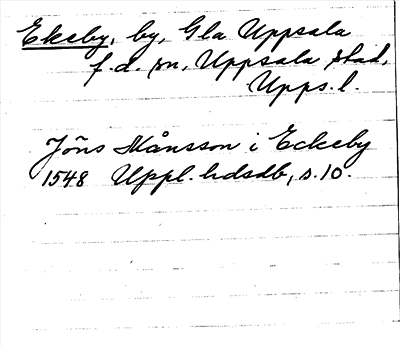 Ekeby, by, Gla Uppsala
f.d. sn, Uppsala stad,
Upps. l.
Jöns Månsson i Eckeby
1548 Uppl. hdsdb, s. 10.